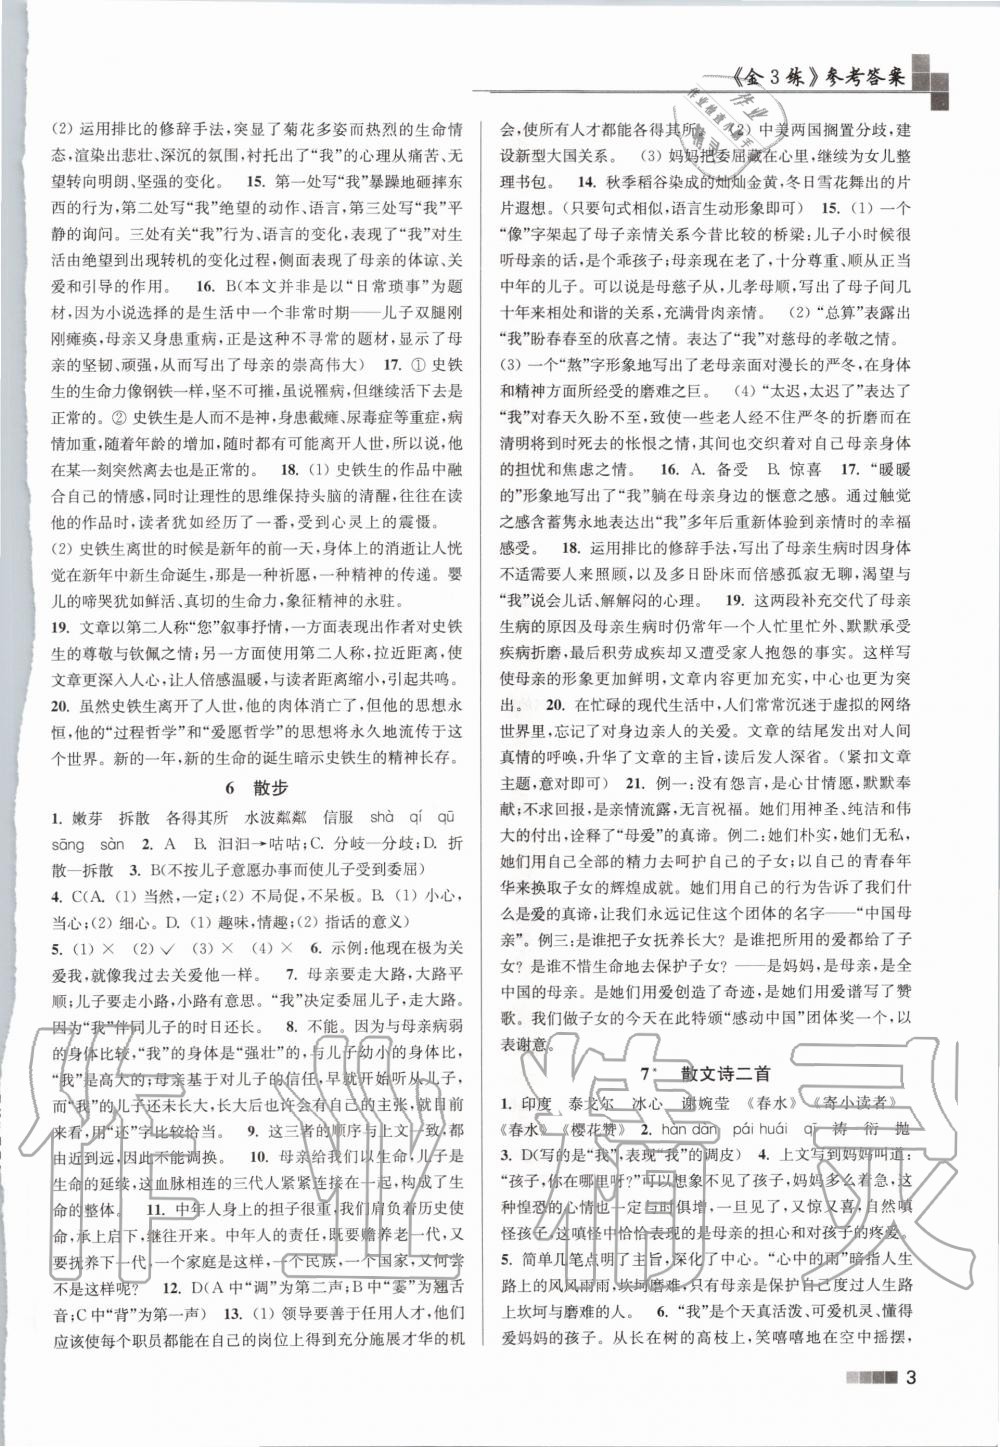 《金3练》参考答案
(2) 运用排比的修辞手法，突显了菊花多姿而热烈的生命情
态，渲染出悲壮、深沉的氛围，衬托了“我”的心理从痛苦、无
望转向明朗、坚强的变化。 15. 第一处写“我”暴躁地砸摔东
西的行为，第二处写“我”绝望的动作、语言，第三处写“我”平
静的询问。三处有关“我”行为、语言的变化，表现了“我”对生
活由绝望到出现转机的变化过程，侧面表现了母亲的体谅、关
爱和引导的作用。 16. B(本文并非是以“日常琐事”为题
材，因为小说选择的是生活中一个非常时期——儿子双腿刚
刚瘫痪，母亲又身患重病，这是极不寻常的题材，并且显示了母
亲的坚韧、顽强，从而写出了母亲的崇高伟大) 17. ① 史铁
生的生命力像钢铁一样，坚不可摧，虽说罹病，但继续活下去是
正常的。② 史铁生是人而不是神，身患截瘫、尿毒症等重症，病
情加重，随着年龄的增加，随时都有可能离开人世，所以，他
在某一刻突然离去也是正常的。 18. (1) 史铁生的作品中融
合自己的情感，同时让理性的思维保持头脑的清醒，往往在读
他的作品时，读者犹如经历了一番，受到心灵上的震慑。
(2) 史铁生离世的时候是新年的前一天，身体上的消逝让人恍
觉在新年中新生命诞生，那是一种祈愿，一种精神的传递。婴
儿的啼哭犹如鲜活、真切的生命力，象征精神的永驻。
19. 文章以第二人称“您”叙事抒情，一方面表现出作者对史铁
生的尊敬与钦佩之情；另一方面运用第二人称，拉近距离，使
文章更深入人心，让人倍感温暖，与读者距离缩小，引起共鸣。
20. 虽然史铁生离开了人世，他的肉体消亡了，但他的思想永
恒，他的“过程哲学”和“爱愿哲学”的思想将永久地流传于这
个世界。新的一年，新的生命的诞生暗示史铁生的精神长存。
6 散步
1. 嫩芽 拆散 各得其所 水波粼粼 信服 shà qí qū
sāng sàn 2. A B. 汩汩→咕咕；C. 分岐—分歧；D. 折
散—拆散 3. B(不按儿子意愿办事而使儿子受到委屈)
4. C(A. (1) 当然，一定；(2) 不局促，不呆板。B. (1) 小心，
当心；(2) 细心。D. (1) 趣味，情趣；(2) 指话的意义)
5. (1) × (2) ✓ (3) × (4) × 6. 示例：他现在极为关
爱我，就像我过去关爱他一样。 7. 母亲要走大路，大路平
顺；儿子要走小路，小路有意思。“我”决定委屈儿子，走大路。
因为“我”伴同儿子的时日还长。 8. 不能。对于母亲病弱
的身体比较，“我”的身体是“强壮”的，与儿子幼小的身体比较，
“我”是高大的；母亲基于对儿子的信任听从“我”的安排；
“我”的儿子还未长大，但长大后也许会有自己的主张，就目前
而言，“我”的话对儿子有较强的影响力，他能听从“我”，因而
用“还”字比较恰当。 9. 这三者的顺序与上文一致，都由
近达到远，因此不能调换。 10. 母亲给我们以生命，儿子是
生命的延续，这血脉相连的三代人紧紧连接在一起，构成生
命的整体。 11. 中年人身上的担子很重，我们肩负着历史使
命，承上启下，继往开来。中年人的责任，既赡养老一代，又
抚养下一代，一个家庭是这样，一个民族，一个国家，又何尝
不是这样呢？ 12. D(A 中“调”为第二声；B 中“霎”为翘舌
音；C 中“背”为第一声) 13. (1) 领导要善于任用人才，他们
应该使每个职员都能在自己的岗位上得到充分施展才华的机
会，使所有人才都能各得其所。 (2) 中美两国搁置分歧，建
设新型大国关系。 (3) 妈妈把委屈藏在心里，继续为女儿整
理书包。 14. 秋季稻谷染成的灿灿金黄，冬日雪花舞出的片
片遐想。(只要句式相似，语言生动形象即可) 15. (1) 一个
“像”字架起了母子亲情关系今昔比较的桥梁：儿子小时候很
听母亲的话，是个乖孩子；母亲现在老了，十分尊重、顺从正当
中年的儿子。可以说是母慈子从，儿孝母顺，写出了母子间几
十年来相处和谐的关系，充满骨肉亲情。 (2) “总算”表露出
“我”盼春春至的欣喜之情。表达了“我”对慈母的孝敬之情。
(3) 一个“熬”字形象地写出了老母亲面对漫长的严冬，在身体
和精神方面所经受的磨难之巨。 (4) “太迟，太迟了”表达了
“我”对春天久盼不至，致使一些老人经不住严冬的折磨而在
清明将到时死去的怅恨之情，其间也交织着对自己母亲身体
的担忧和焦虑之情。 16. A. 备受 B. 惊喜 17. “暖暖
的”形象地写出了“我”躺在母亲身边的惬意之感。通过触觉
之感含蓄隽永地表达出“我”多年后重新体验到亲情时的幸福
感受。 18. 运用排比的修辞手法，写出了母亲生病时因身体
不适需要以及多日卧床而倍感孤寂无聊，渴望与
“我”说会儿话、解解闷的心理。 19. 这两段补充交代了母亲
生病的原因及母亲生病时仍常年一个人忙里忙外、默默承受
疾病折磨，最后积劳成疾却又遭受家人抱怨的事实。这样写
使母亲的形象更加鲜明，文章内容更加充实，中心也更加突
出。 20. 在忙碌的现代生活中，人们常常沉迷于虚拟的网络
世界里，忽略了对身边亲人的关爱。文章的结尾发出对人间
真情的呼唤，升华了文章的主旨，读后发人深省。(紧扣文章
主题，意对即可) 21. 例一：母爱，是心甘情愿，默默奉
献；不求回报，是亲情流露，无言祝福。她们用神圣、纯洁和伟
大的付出，诠释了“母爱”的真谛。例二：她们朴实，她们无私，
她们用自己全部的精力去呵护自己的子女；以自己的青春年
华来换取子女的辉煌成就。她们用自己的行为告诉了我们什
么是爱的真谛，让我们永远记住这个团体的名字——“中国母
亲”。例三：是谁把子女抚养长大？是谁把所用的爱奉献给了子
女？是谁不惜生命地去保护子女？——是妈妈，是母亲，是全
中国的母亲。是她们用爱创造了奇迹，是她们谱写了赞
歌。我们做子女的今天在此特颁“感动中国”团体奖一个，以
表谢意。
7* 散文诗二首
1. 印度 泰戈尔 冰心 谢婉莹 《春水》 《寄小读者》
《春水》 《樱花赞》 2. hàn dàn pái huái qī 祷 衍 抛
3. D(写的是“我”，表现“我”的调皮) 4. 上文写到妈妈叫道，
“孩子，你在哪里呀？”可以想见，“我”消失了，妈妈多么着急，这
种惶恐的心情也一定与时俱增，一旦出现，又惊又喜，自然嗔
怪孩子，在嗔怪中恰恰表现的是母亲的担心和对孩子的疼爱。
5. 简单几笔点明了主旨，深化了中心。“心中的雨”暗指人生
路上的风风雨雨，坎坷磨难，只有母亲是保护自己度过人生路
上坎坷与磨难的人。 6. “我”是个天真活泼、可爱机灵、懂得
爱妈妈的孩子。从长在树的高枝上，笑嘻嘻地在空中摇摆，
3
作业精灵